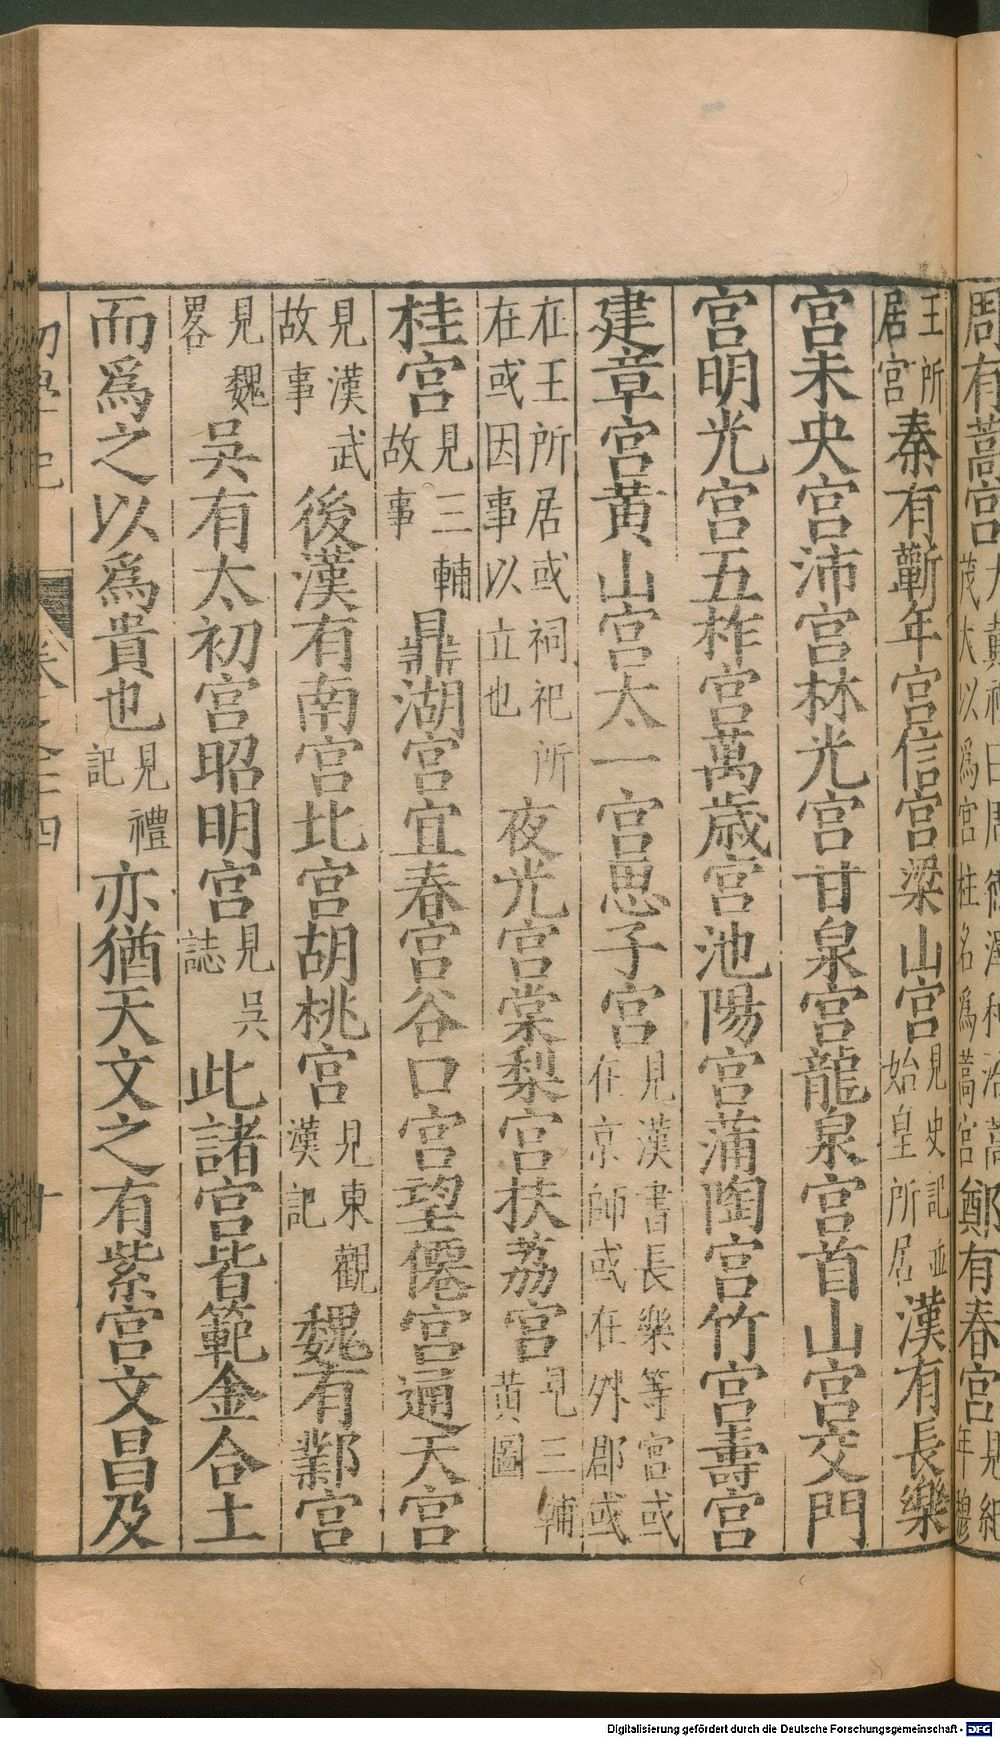 周有蒿宮
茂大以爲宮柱名爲蒿宮
鄭有春宮
王所
居宮
秦有蘄年宮信宮梁山宮
見史記並
始皇所居
漢有長樂
宮未央宮沛宮林光宮甘泉宮龍泉宮首山宮交門
宮明光宮五柞宮萬歲宮池陽宮蒲陶宮竹宮壽宮
建章宮黃山宮太一宮思子宮
見漢書長樂等宮或
在京師或在外郡或
在王所居或祠祀所
在或因事以立也
夜光宮棠梨宮扶荔宮
見三輔
黃圖
桂宮
見三輔
故事
鼎湖宮宜春宮谷口宮望僊宮通天宮
見漢武
故事
後漢有南宮北宮胡桃宮
見東觀
漢記
魏有鄴宮
見魏
畧
吳有太初宮昭明宮
見吳
誌
此諸宮皆範金合土
而爲之以爲貴也
見禮
記
亦猶天文之有紫宮文昌及
初學記
卷之二十四
十
Digitalisierung gefördert durch die Deutsche Forschungsgemeinschaft - DFG